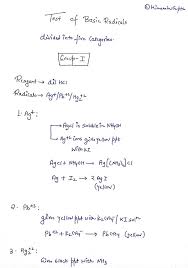 @HimanshuGupta
Test of Basic Radicals
divided into five Categories.
Group-I
Reagent → dil HCl
Radicals → Ag⁺/Pb²⁺/Hg₂²⁺
1. Ag⁺:
→ AgCl is soluble in NH₄OH
→ Ag⁺ ions give yellow ppt
with KI
AgCl + NH₄OH → Ag(NH₃)₂]Cl
Ag + I₂ → 2AgI
(yellow)
2. Pb²⁺
gives yellow ppt with K₂CrO₄ / KI
Pb²⁺ + K₂CrO₄ → PbCrO₄ (yellow)
3. Hg₂²⁺
Gives black ppt with NH₃